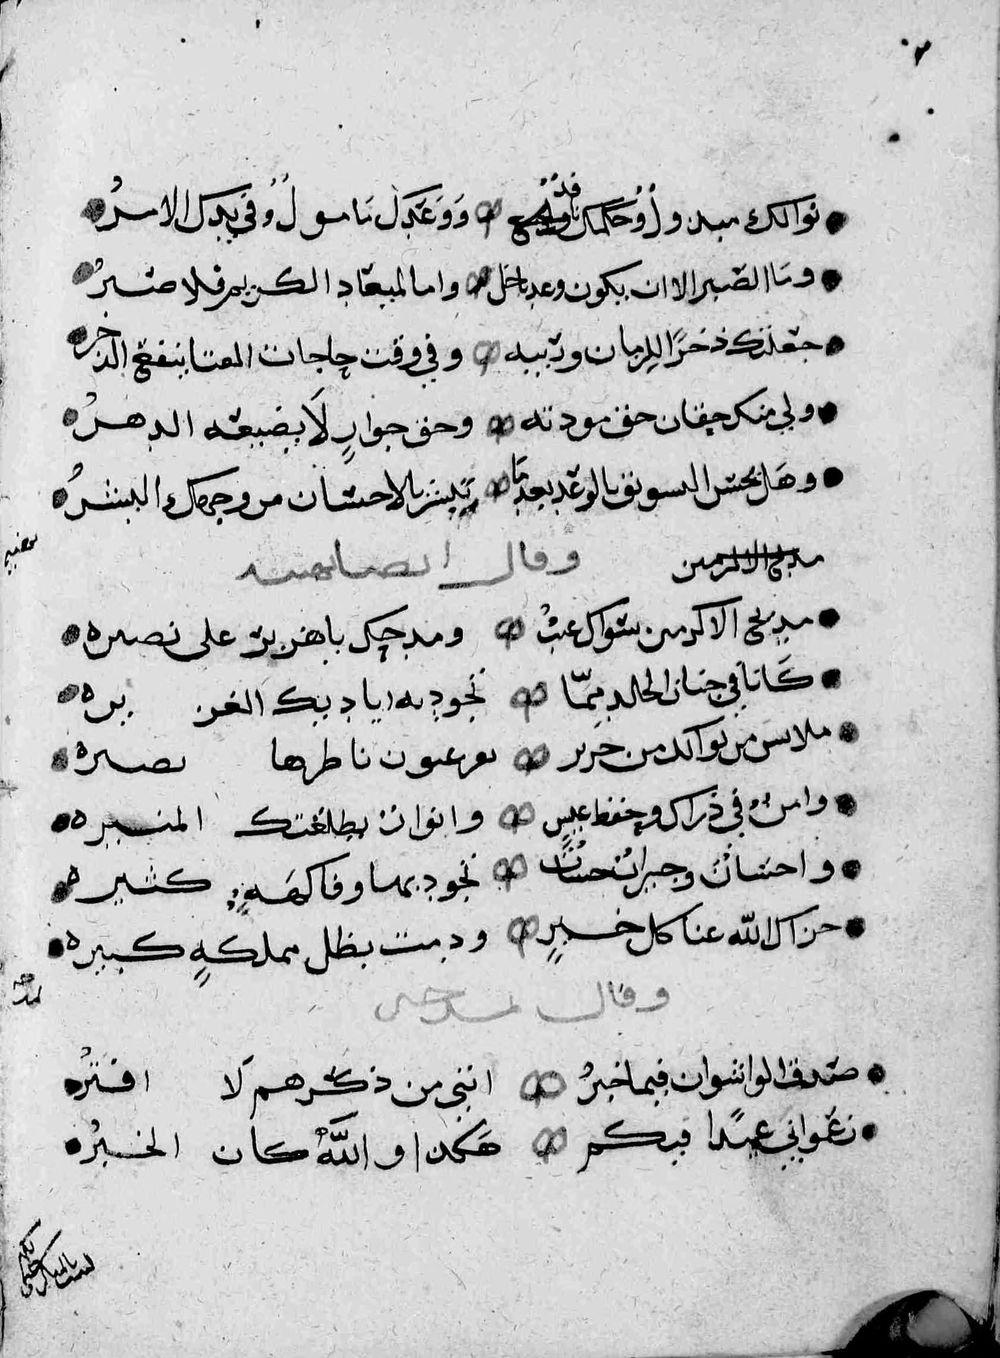 نوالك مبدول وحكمك نافد ووعدك مامول وفي يدك الامر
وما الصبر الا ان يكون وعد باخل واما لميعاد الكريم فلا صبر
جعلتك ذخرا للزمان وريبه وفي وقت حاجات الفتا ينفع الذخر
ولي منك حقان حق مودته وحق جوار لا يضيعه الدهر
وهل يحسن التسويف بالوعد بعدما يبشر بالاحسان من وجهك البشر
مديح الاكرمين
وقال ايضا
مديح الاكرمين سواك عيب ومدحك يا هزبر على نصيره
كانا في جنان الخلد مما تجود به اياديك الغزيره
ملابس من نوالك من حرير نور عيون ناظرها بصيره
وامن في ذراك وخفظ عيش وانوار بطلعتك المنيره
واحسان وجيران حسان تجود بها وفاكهة كثيره
جزاك الله عنا كل خير ودمت بظل مملكة كبيره
وقال
صدق الواشون فيما اخبر انني من ذكرهم لا افتر
زعموا اني عبدا فيكم هكدا والله كان الخبر